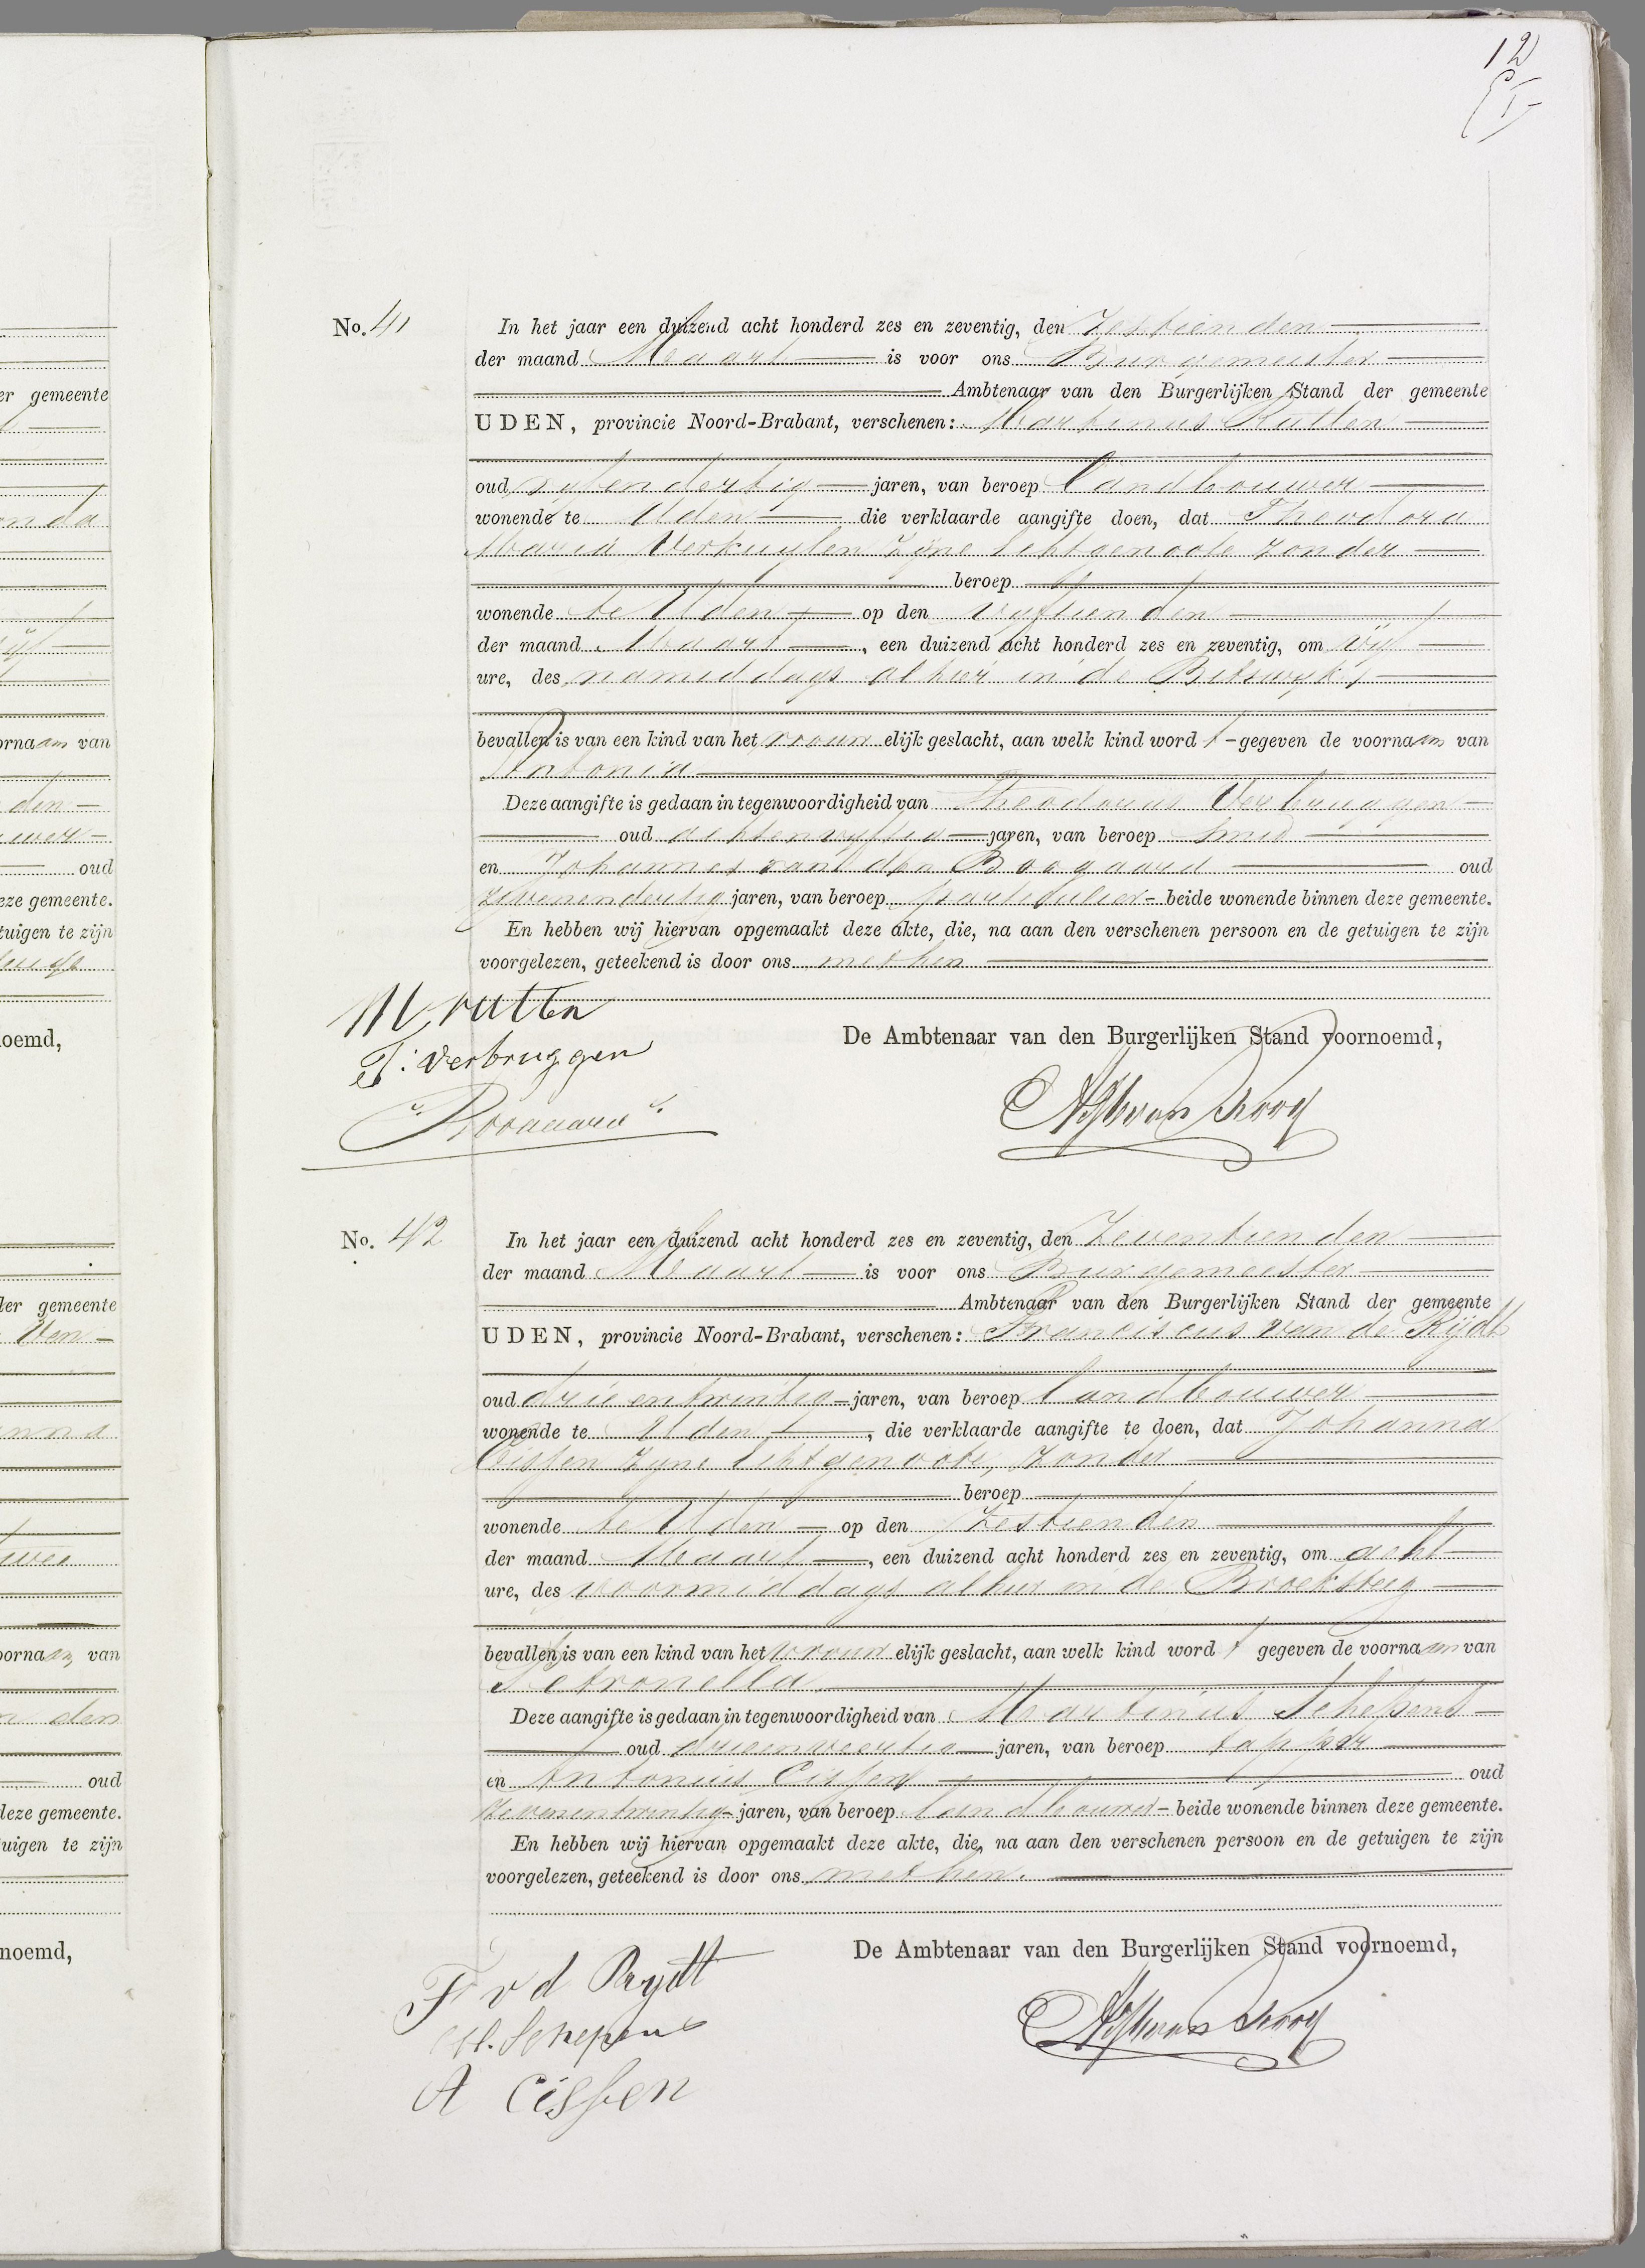 12
No. 41 In het jaar een duizend acht honderd zes en zeventig, den Zestienden
der maand Maart is voor ons Burgemeester
Ambtenaar van den Burgerlijken Stand der gemeente
UDEN, provincie Noord-Brabant, verschenen: Martinus Rutten
oud vijfendertig jaren, van beroep landbouwer
wonende te Uden die verklaarde aangifte doen, dat Theodora
Maria Verkuylen zijne Echtgenoote zonder
beroep
wonende te Uden op den vyftienden
der maand Maart, een duizend acht honderd zes en zeventig, om vyf
ure, des namiddags alhier in de Bitswyk,
bevallen is van een kind van het vrouwelijk geslacht, aan welk kind wordt gegeven de voornaam van
Antonia
Deze aangifte is gedaan in tegenwoordigheid van Theodorus Verbruggen
oud achtenvyftig jaren, van beroep Smid
en Johannes van den Boogaard oud
zevenendertig jaren, van beroep particulier beide wonende binnen deze gemeente.
En hebben wij hiervan opgemaakt deze akte, die, na aan den verschenen persoon en de getuigen te zijn
voorgelezen, geteekend is door ons met hen
M rutten
T: verbruggen
Boogaard
De Ambtenaar van den Burgerlijken Stand voornoemd,
No. 42 In het jaar een duizend acht honderd zes en zeventig, den Zeventienden
der maand Maart is voor ons Burgemeester
Ambtenaar van den Burgerlijken Stand der gemeente
UDEN, provincie Noord-Brabant, verschenen: Franciscus van de Rijdt
oud drieentwintig jaren, van beroep landbouwer
wonende te Uden, die verklaarde aangifte te doen, dat Johanna
Cissen zyne Echtgenoote, zonder
beroep
wonende te Uden op den Zestienden
der maand Maart, een duizend acht honderd zes en zeventig, om acht
ure, des voormiddags alhier in de Broeksteeg
bevallen is van een kind van het vrouwelijk geslacht, aan welk kind wordt gegeven de voornaam van
Petronella.
Deze aangifte is gedaan in tegenwoordigheid van Martinus Schepens
oud drieenveertig jaren, van beroep tapper
en Antonius Cissen oud
zevenentwintig jaren, van beroep landbouwer beide wonende binnen deze gemeente.
En hebben wij hiervan opgemaakt deze akte, die, na aan den verschenen persoon en de getuigen te zijn
voorgelezen, geteekend is door ons met hen.
De Ambtenaar van den Burgerlijken Stand voornoemd,
F v d Rydt
M. Schepens
A Cissen